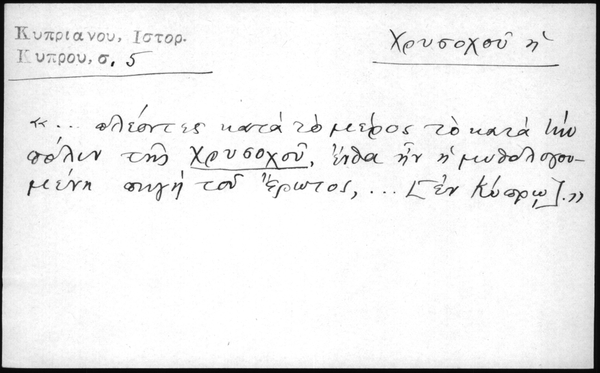 Κυπριανου, Ιστορ.
Κυπρου, σ. 5
Χρυσοχοῦ ἡ
«... πλέοντες κατὰ τὸ μέρος τὸ κατὰ τὴν
πόλιν τῆς Χρυσοχοῦ, ἔνθα ἦν ἡ μυθολογου-
μένη πηγὴ τοῦ Ἔρωτος, ... [ἐν Κύπρῳ].»